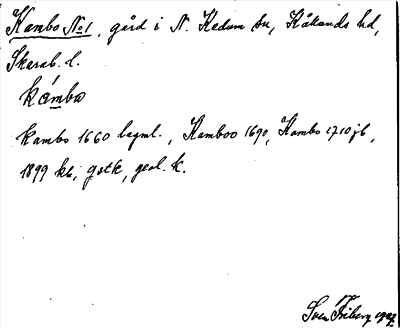 Kambo No 1, gård i N. Kedum sn, Kållands hd,
Skarab. l.
kámbω
Kambo 1660 lagml., Kamboo 1690, Kambo 1710 jb,
1899 kb, gstk, geol. k.
Sven Friberg 1927.